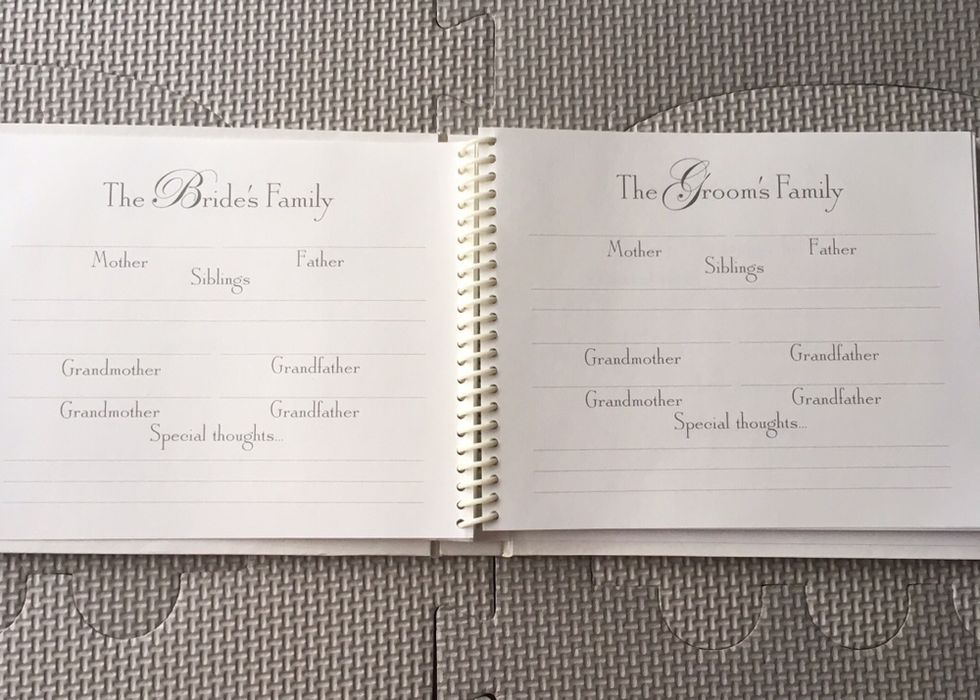 The Bride's Family
Mother Father
Siblings
Grandmother Grandfather
Grandmother Grandfather
Special thoughts...
The Groom's Family
Mother Father
Siblings
Grandmother Grandfather
Grandmother Grandfather
Special thoughts...